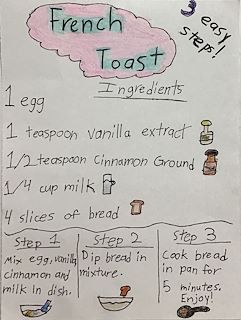 French
Toast
3 easy
steps!
Ingredients
1 egg
1 teaspoon vanilla extract
1/2 teaspoon Cinnamon Ground
1/4 cup milk
4 slices of bread
Step 1
Mix egg, vanilla,
cinnamon and
milk in dish.
Step 2
Dip bread in
mixture.
Step 3
Cook bread
in pan for
5 minutes.
Enjoy!